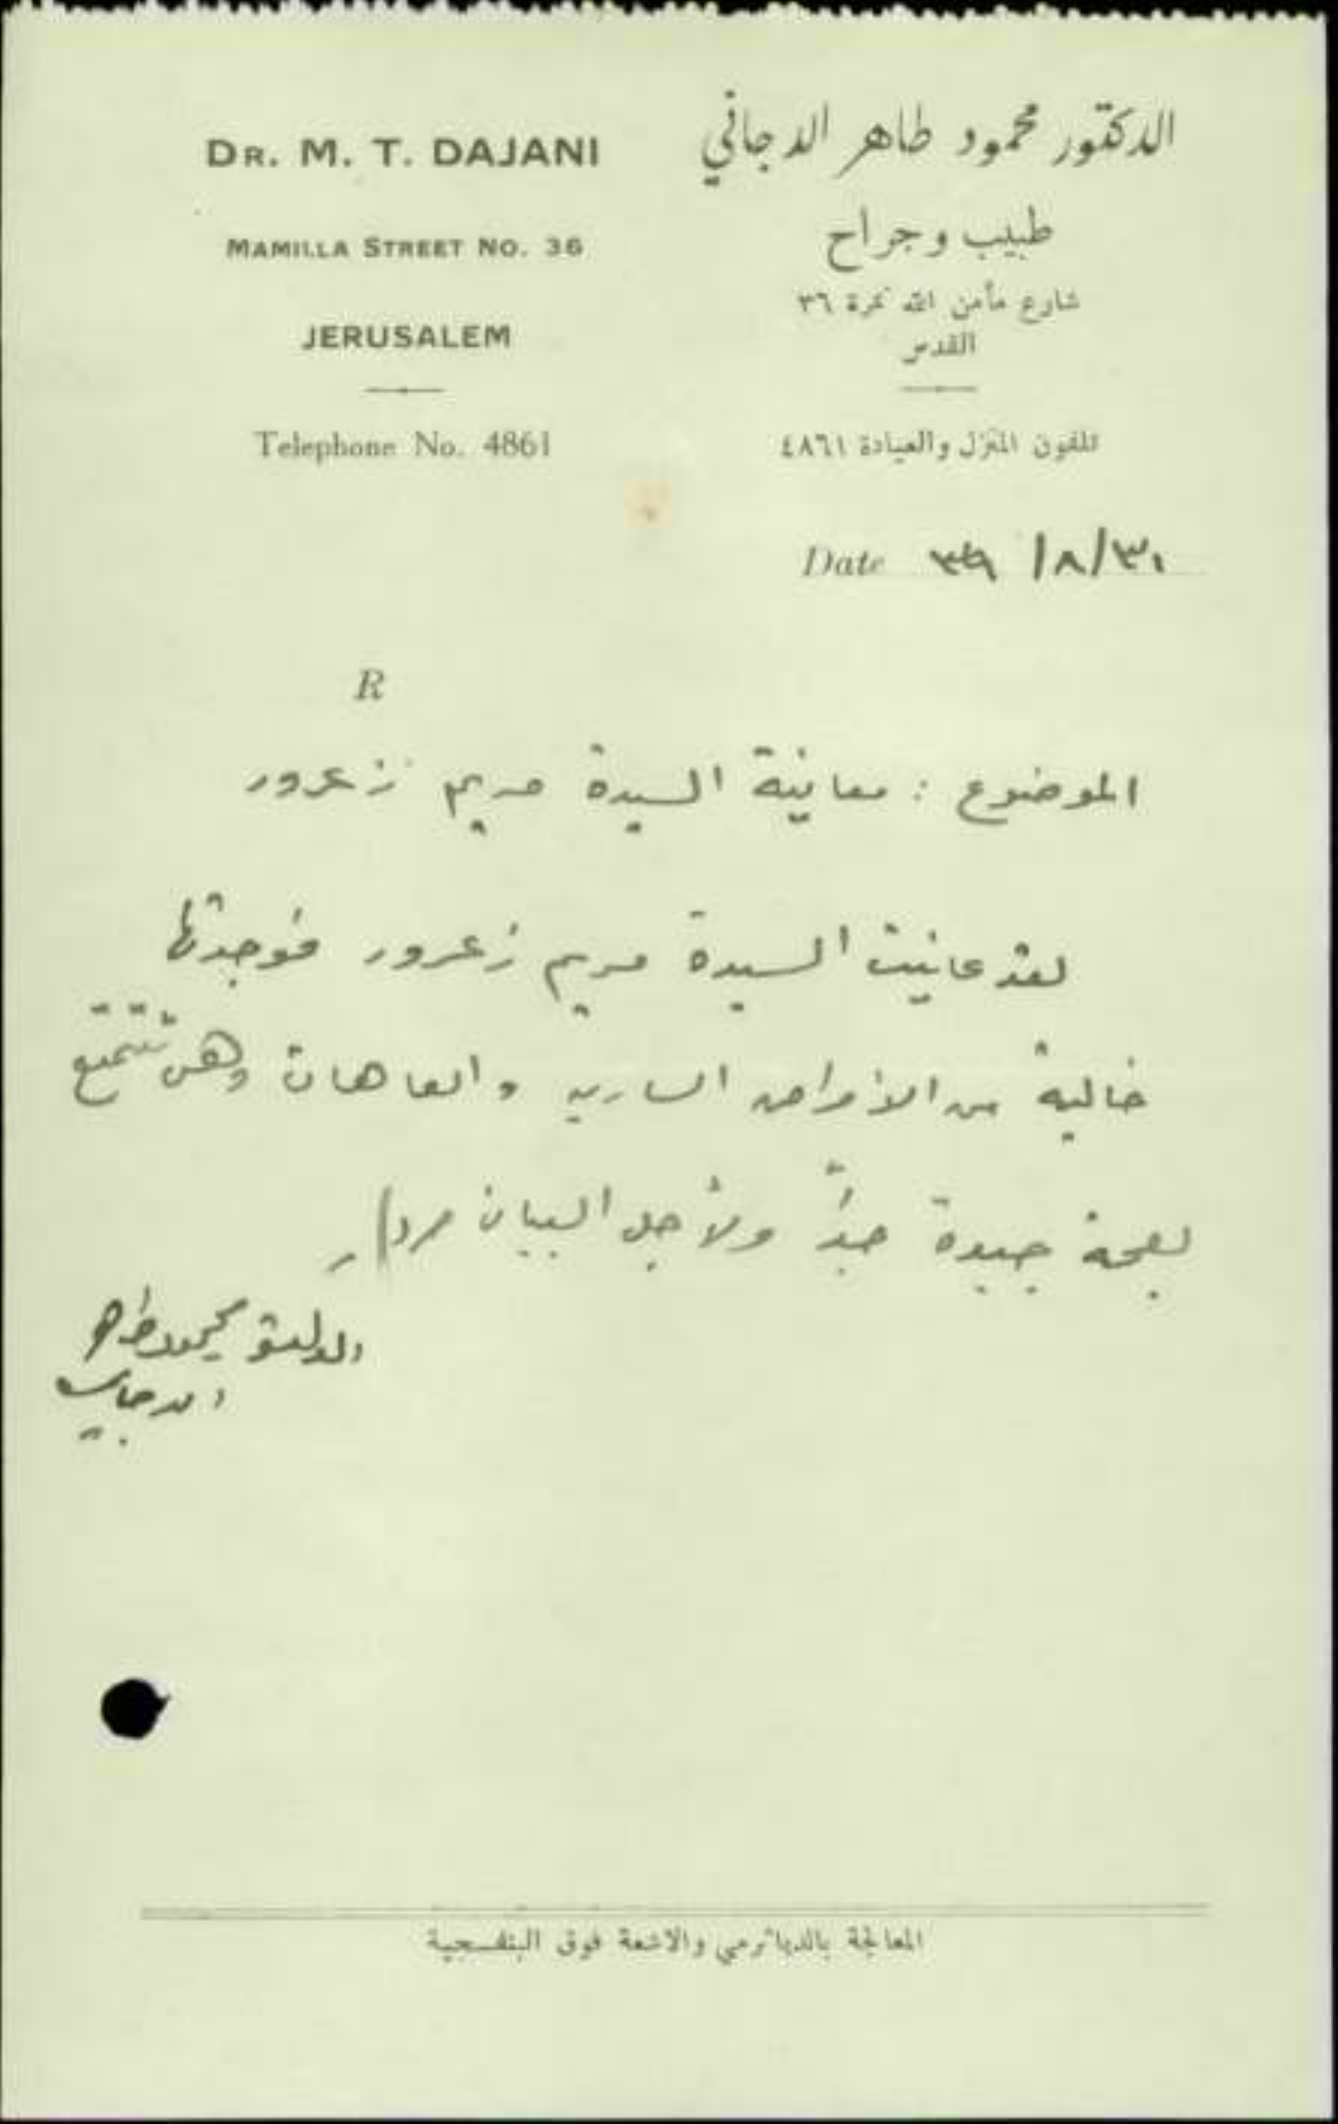 DR. M. T. DAJANI
MAMILLA STREET NO. 36
JERUSALEM
Telephone No. 4861
الدكتور محمود طاهر الدجاني
طبيب وجراح
شارع مأمن الله نمرة ٣٦
القدس
تلفون المنزل والعيادة ٤٨٦١
Date ٣١/٨/ ٣٩
R
الموضوع : معاينة السيدة مريم زعرور
لقد عاينت السيدة مريم زعرور فوجدتها
خالية من الأمراض السارية والعاهات وهي تتمتع
بصحة جيدة جداً ولأجل البيان
الدكتور محمود طاهر
الدجاني
المعالجة بالدياترمي والاشعة فوق البنفسجية